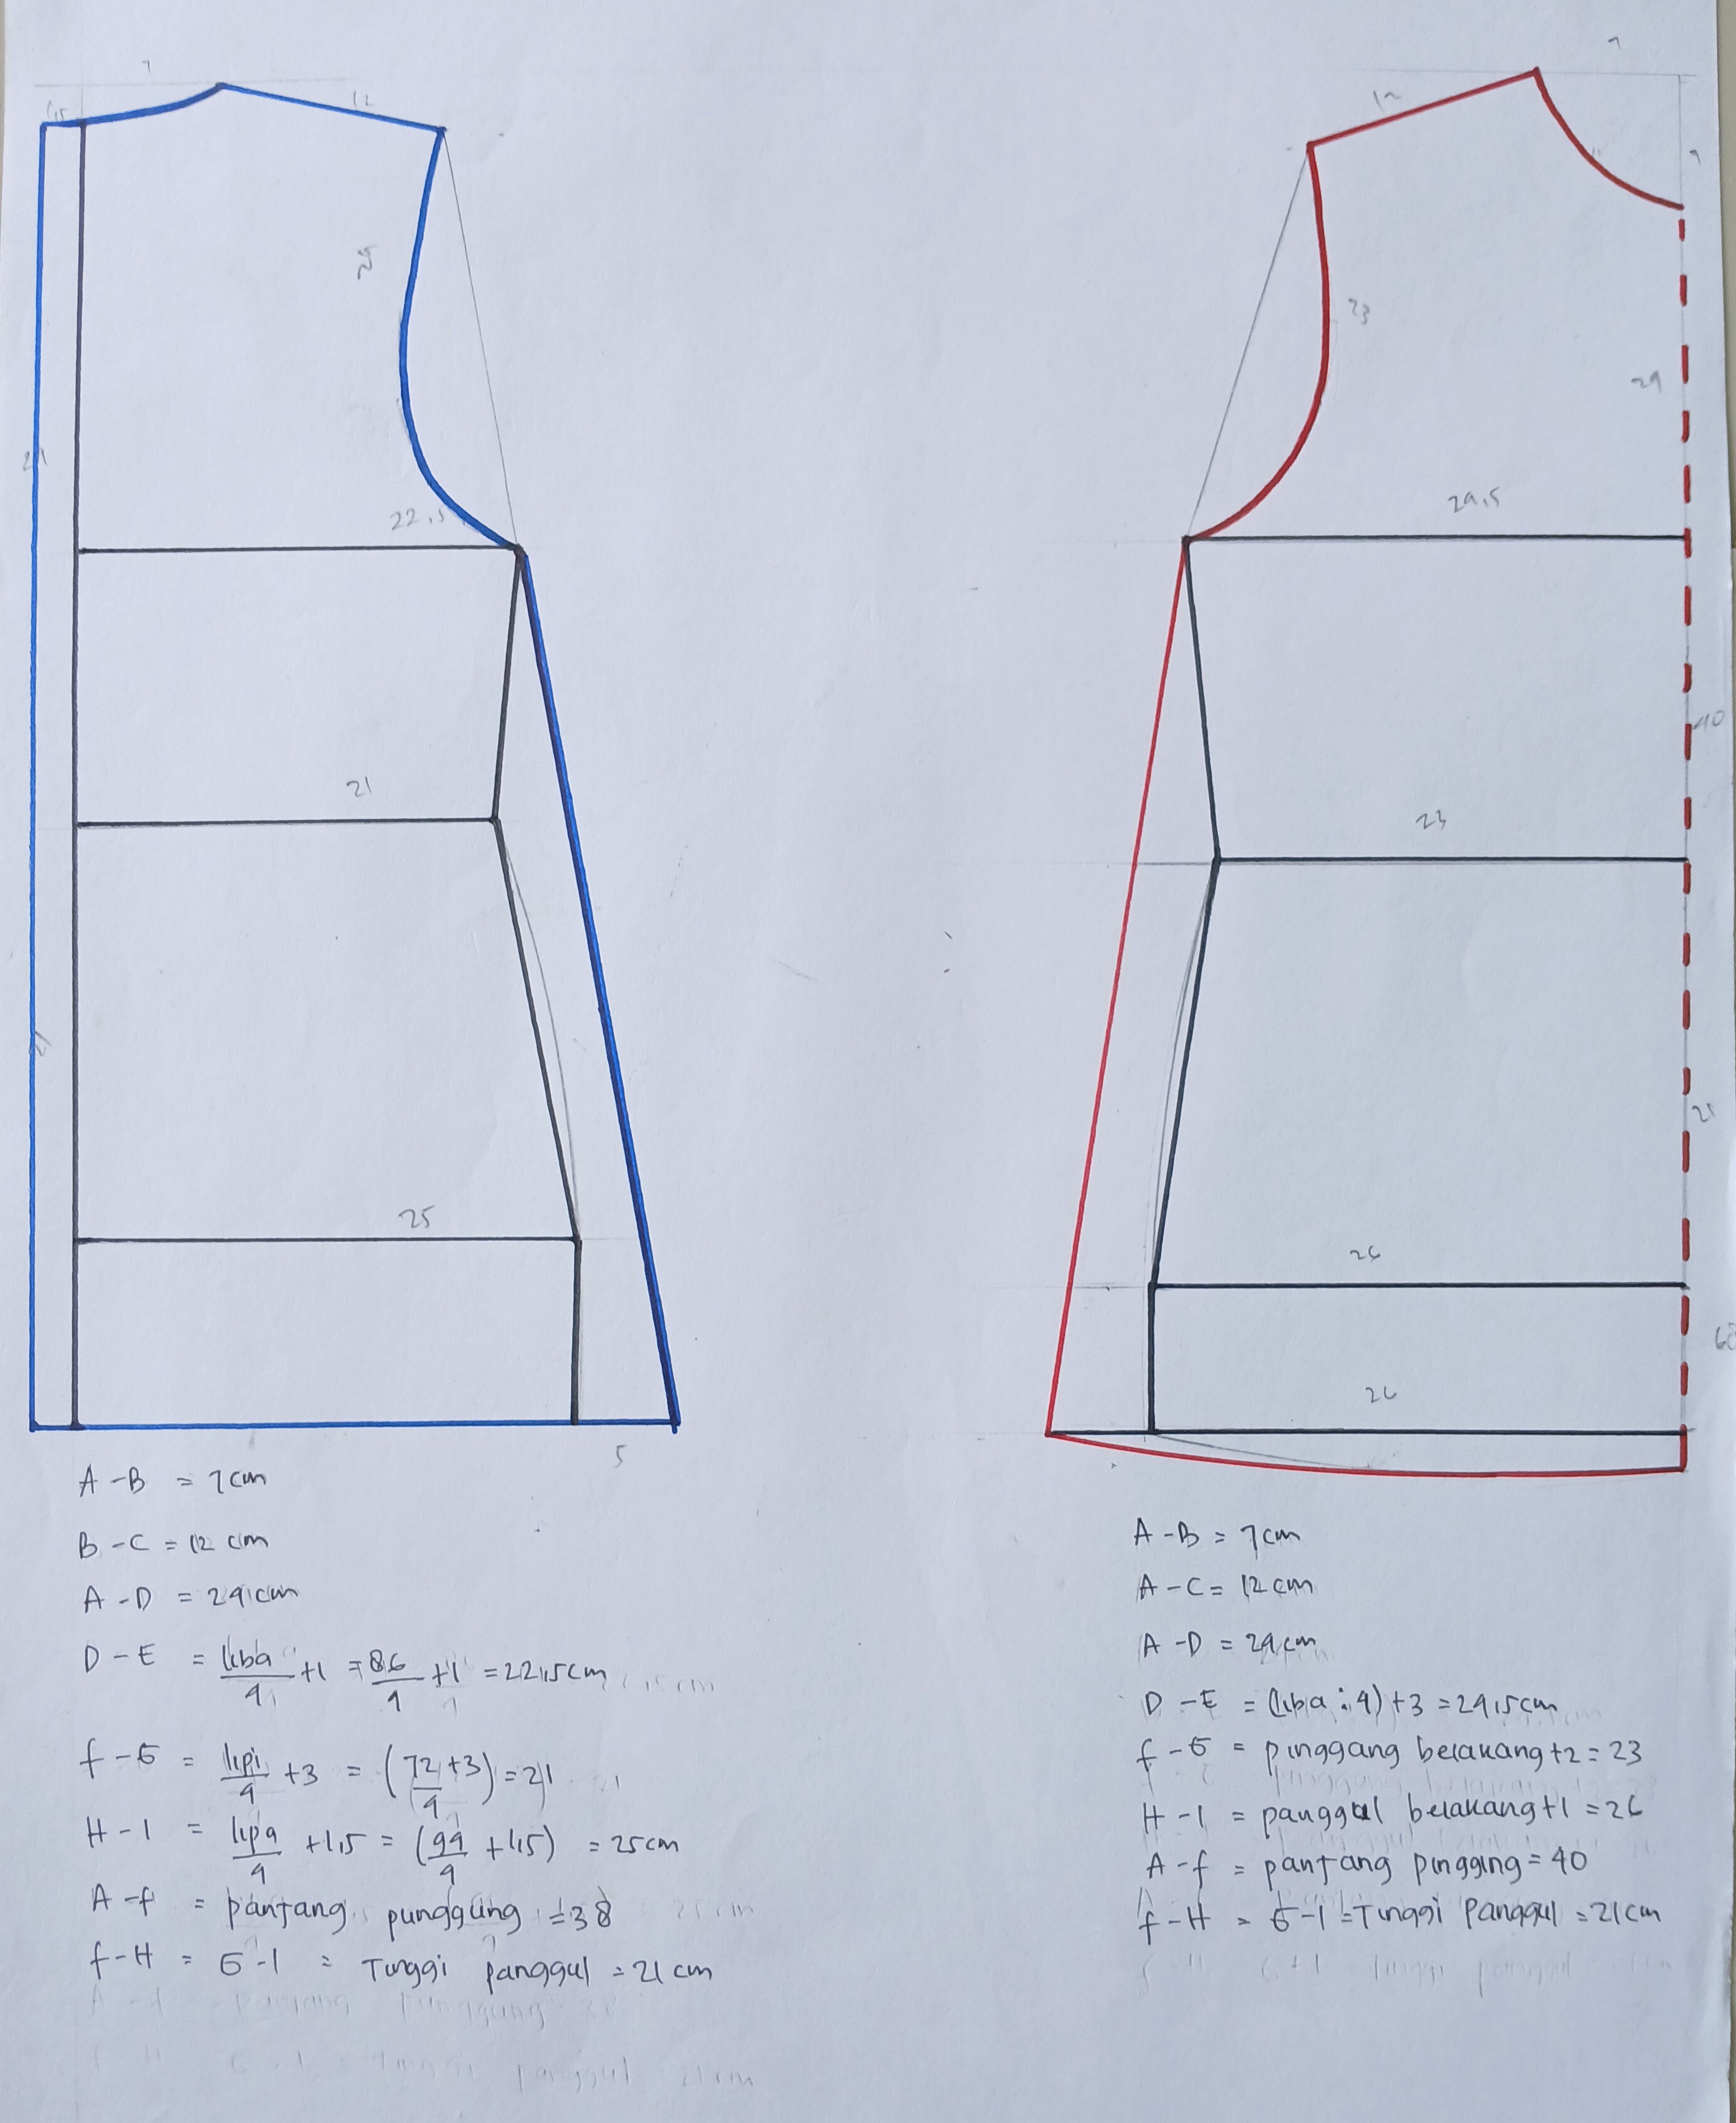 7
1,5
12
21
22,5
21
21
25
5
A - B = 7 cm
B - C = 12 cm
A - D = 24 cm
D - E = liba/4 + 1 = 86/4 + 1 = 22,5 cm
f - G = lipi/4 + 3 = (72/4 + 3) = 21
H - I = lipa/4 + 1,5 = (94/4 + 1,5) = 25 cm
A - f = panjang punggung = 38
f - H = G - I = Tinggi panggul = 21 cm
7
12
9
23
29
24,5
40
23
21
26
60
26
A - B = 7 cm
A - C = 12 cm
A - D = 24 cm
D - E = (liba : 4) + 3 = 24,5 cm
f - G = pinggang belakang + 2 = 23
H - I = panggul belakang + 1 = 26
A - f = panjang pingging = 40
f - H = G - I = Tinggi Panggul = 21 cm